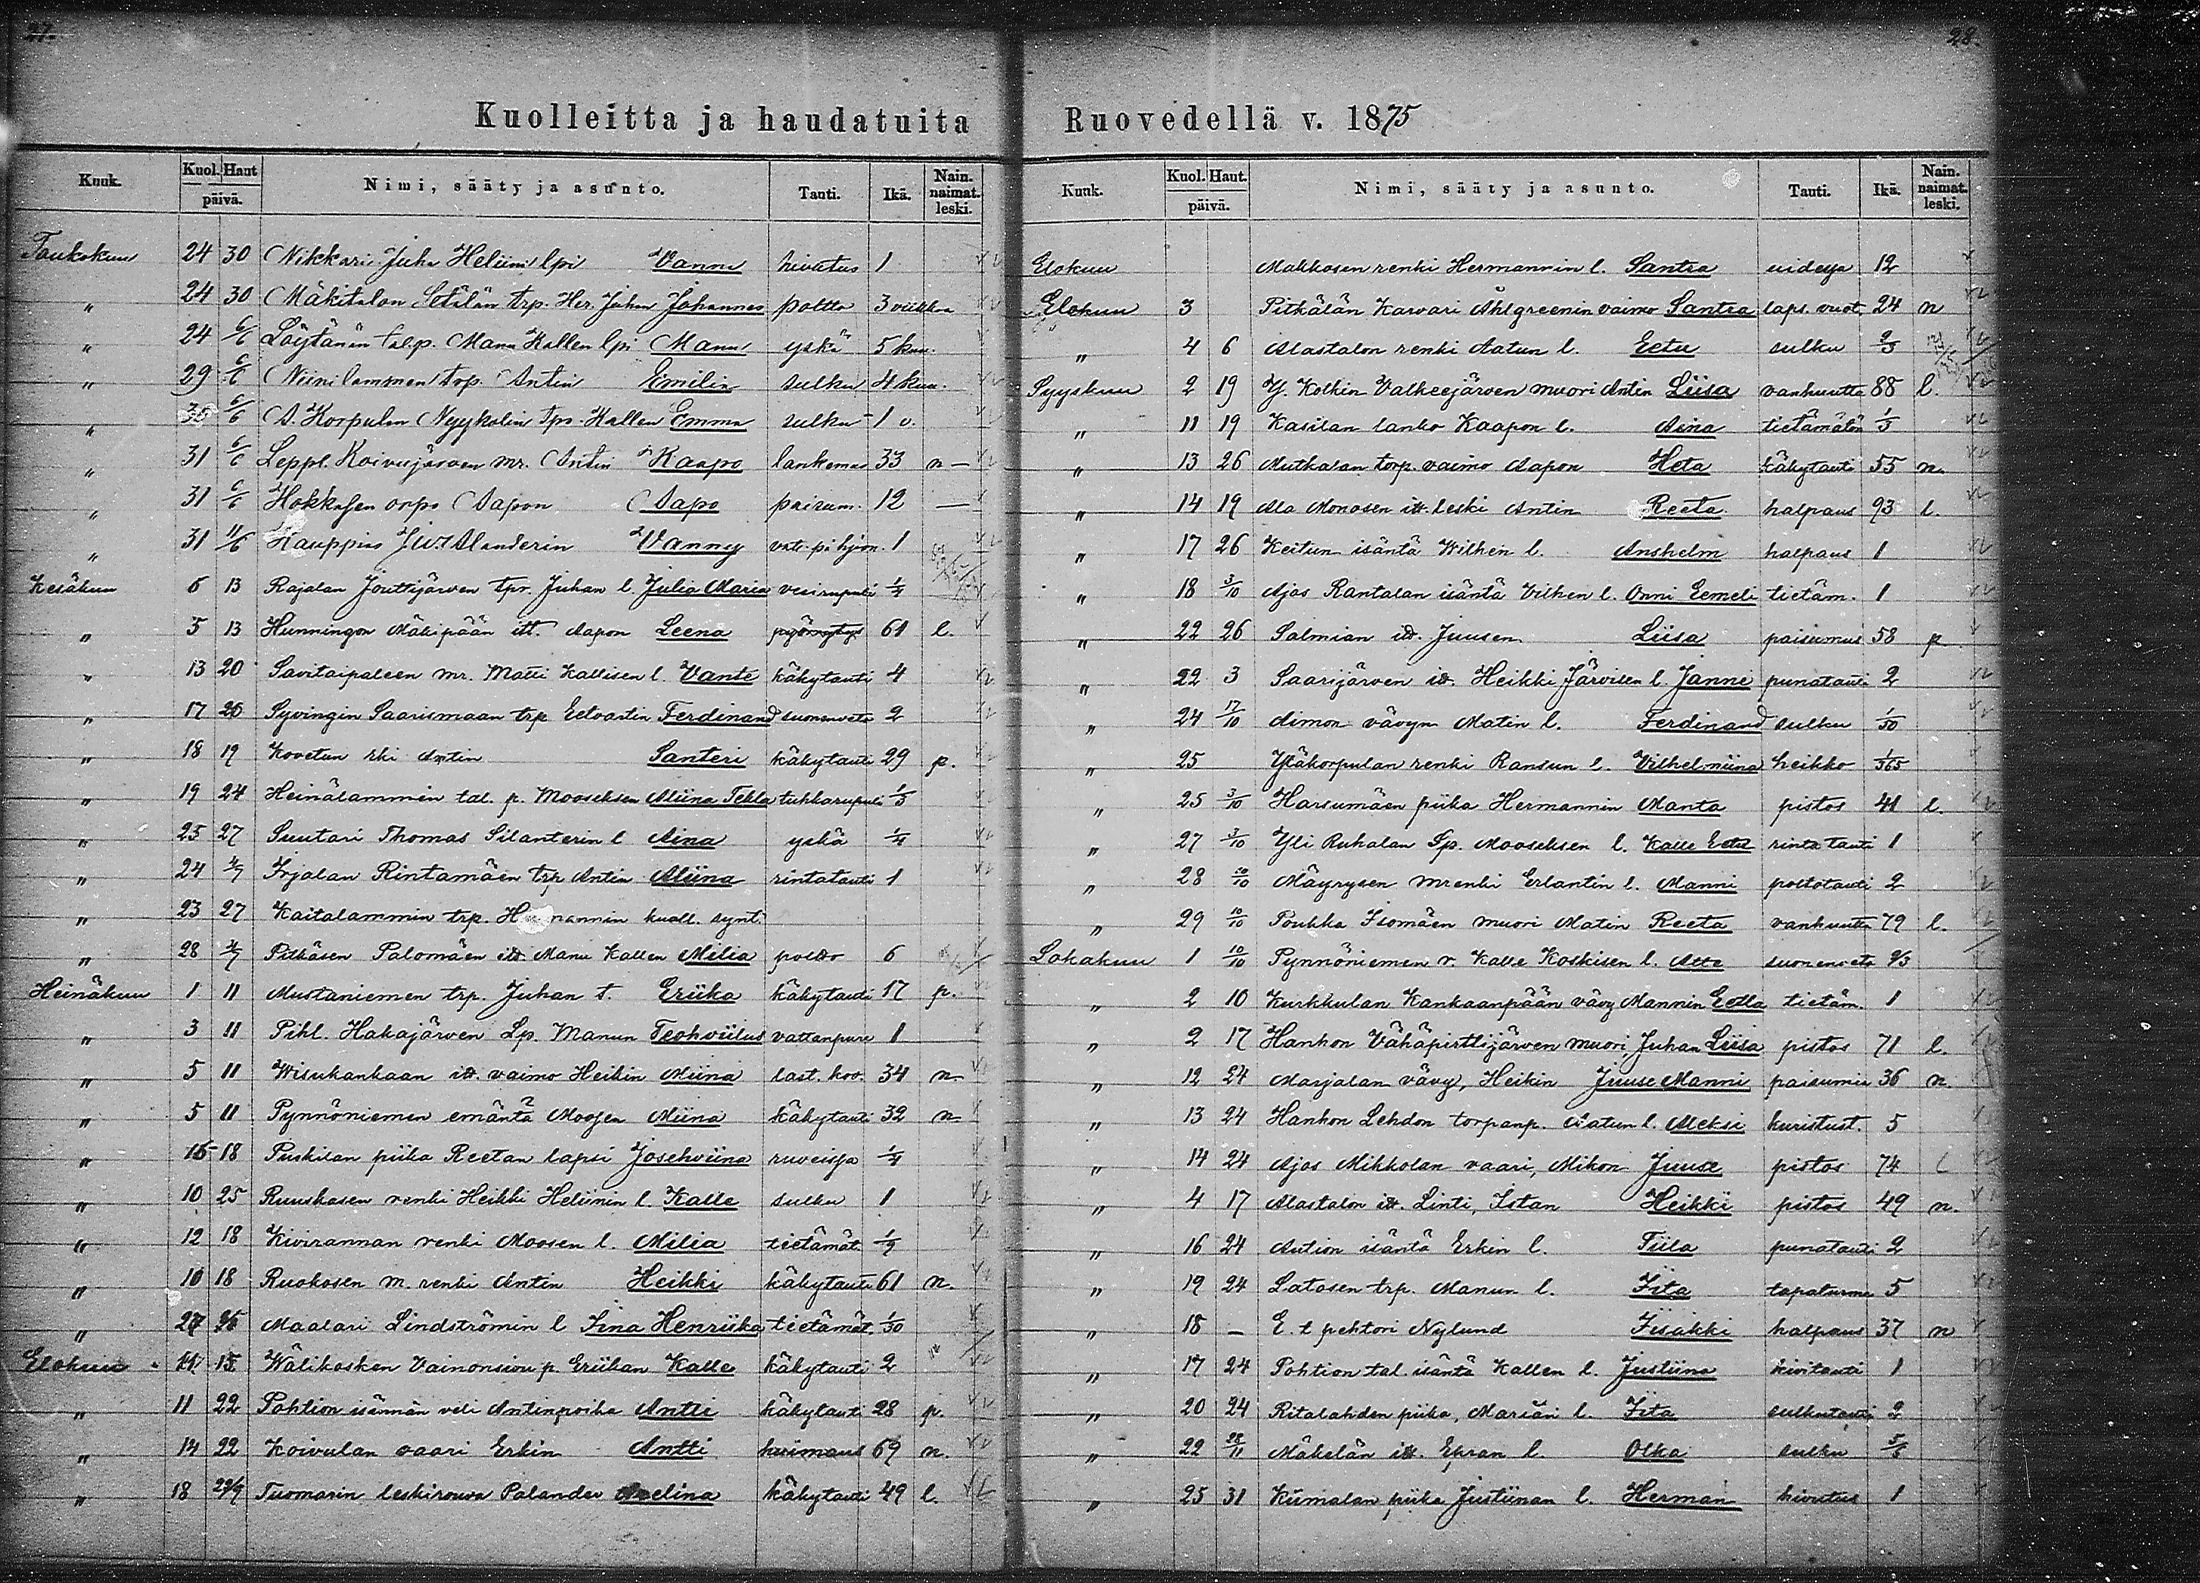 27.
28.
Kuolleitta ja haudatuita
Ruovedellä v. 1875
Kuuk. Kuol. Haut päivä. Nimi, sääty ja asunto. Tauti. Ikä. Nain. naimat. leski.
Toukokuu 24 30 Nikkari Juha Helinin lpi Vanni hivutus 1
" 24 30 Mäkitalon Setälän trp. Her. Juhan Johannes poltto 3 viikkoa
" 24 6/6 Löytänän tal.p. Manu Kallen lpi Manu yskä 5 kuu.
" 29 6/6 Niinilammen trp. Antin Emilia sulku 4 kuu.
" 30 6/6 A. Korpulan Nyykolin tpr Kallen Emma sulku 1 v.
" 31 6/6 Leppl. Koivujärven mr. Antin Kaapo lankemus 33 n –
" 31 6/6 Hokkasen orpo Aapon Aapo paisum. 12 –
" 31 11/6 Kauppias Alanderin Vanny 1
Kesäkuu 6 13 Rajalan Jouttijärven tpr. Juhan l. Julia Maria vesirupuli 1/4
" 5 13 Hunningon Mäkipään itt. Aapon Leena pyörrytys 61 l.
" 13 20 Savitaipaleen mr. Matti Kallisen l. Vante käkytauti 4
" 17 20 Syvingin Saarismaan trp Eetvartin Ferdinand suonenveto 2
" 18 19 Kovetun rki Antin Santeri käkytauti 29 p.
" 19 24 Heinälammin tal. p. Mooseksen Miina Tekla tuhkarupuli 1/3
" 25 27 Suutari Thomas Silanterin l Aina yskä 1/4
" 24 4/7 Irjalan Rintamäen trp Antin Miina rintatauti 1
" 23 27 Kaitalammin trp. Hermannin kuoll. synt.
" 28 4/7 Pitkäsen Palomäen itt. Manu Kallen Milia poltto 6
Heinäkuu 1 11 Mustaniemen trp. Juhan t. Eriika käkytauti 17 p.
" 3 11 Pihl. Hakajärven Lp. Manun Teohviilus vattanpure 1
" 5 11 Wisukankaan itt. vaimo Heikin Miina last. koo. 34 n.
" 5 11 Pynnöniemen emäntä Moosen Miina käkytauti 32 n.
" 15 18 Puskilan piika Reetan lapsi Josehviina ruveissa 1/4
" 10 25 Ruuskasen renki Heikki Helinin l. Kalle sulku 1
" 12 18 Kivirannan renki Moosen l. Milia tietämät. 1/2
" 10 18 Ruokosen m. renki Antin Heikki käkytauti 61 n.
" 27 Maalari Lindströmin l Iina Henriika tietämät. 1/30
Elokuu 15 Wälikosken Vainonsivu p. Eriikan Kalle käkytauti 2
" 11 22 Pohtion isännän veli Antinpoika Antti käkytauti 28 p.
" 14 22 Koivulan vaari Erkin Antti huimaus 69 n.
" 18 29/9 Tuomarin leskirouva Palander Avelina käkytauti 49 l.
Kuuk. Kuol. Haut. päivä. Nimi, sääty ja asunto. Tauti. Ikä. Nain. naimat. leski.
Elokuu Makkosen renki Hermannin l. Santra uidessa 12
Elokuu 3 Pitkälän Karvari Åhlgreenin vaimo Santra laps. vuot. 24 n
" 4 6 Alastalon renki Aatun l. Eetu sulku 2/3
Syyskuu 2 19 Y. Kolkin Valkeejärven muori Antin Liisa vanhuutta 88 l.
" 11 19 Kasilan lanko Kaapon l. Aina tietämätön 1/3
" 13 26 Mutkalan torp. vaimo Aapon Heta käkytauti 55 n.
" 14 19 Ala Monosen itt. leski Antin Reeta halpaus 93 l.
" 17 26 Keitun isäntä Wilhen l. Anshelm halpaus 1
" 18 3/10 Ajos Rantalan isäntä Vilhen l. Onni Eemeli tietäm. 1
" 22 26 Salmian itt. Juusen Liisa paisumus 58 p
" 22 3 Saarijärven itt. Heikki Järvisen l. Janne punatauti 2
" 24 17/10 Aimon vävyn Matin l. Ferdinand sulku 1/50
" 25 Yläkorpulan renki Ransun l. Vilhelmiina heikko 1/365
" 25 3/10 Harsumäen piika Hermannin Manta pistos 41 l.
" 27 3/10 Yli Ruhalan Sp. Mooseksen l. Kalle Eetu rintatauti 1
" 28 10/10 Mäyrysen mrenki Erlantin l. Manni poltotauti 2
" 29 10/10 Pouhka Isomäen muori Matin Reeta vanhuutta 79 l.
Lokakuu 1 10/10 Pynnöniemen r. Kalle Koskisen l. Atte suonenveto 2/3
" 2 10 Kurkkulan Kankaanpään vävy Mannin Eetla tietäm. 1
" 2 17 Hanhon Vähäpirttijärven muori Juhan Liisa pistos 71 l.
" 12 24 Marjalan vävy, Heikin Juuse Manni paisumus 36 n.
" 13 24 Hanhon Lehdon torpanp. Aatun l. Aleksi kuristust. 5
" 14 24 Ajos Mikkolan vaari, Mikon Juuse pistos 74 l
" 4 17 Alastalon itt. Linti, Istan Heikki pistos 49 n.
" 16 24 Aution isäntä Erkin l. Tiila punatauti 2
" 19 24 Latosen trp. Manun l. Iita tapaturma 5
" 18 – E. t pehtori Nylund Iisakki halpaus 37 n
" 17 24 Pohtion tal. isäntä Kallen l. Justiina kivitauti 1
" 20 24 Ritalahden piika, Marian l. Iita sulkutauti 2
" 22 28/11 Mäkelän itt. Epran l. Olka sulku 5/6
" 25 31 Kiimalan piika Justiinan l. Herman hivutus 1